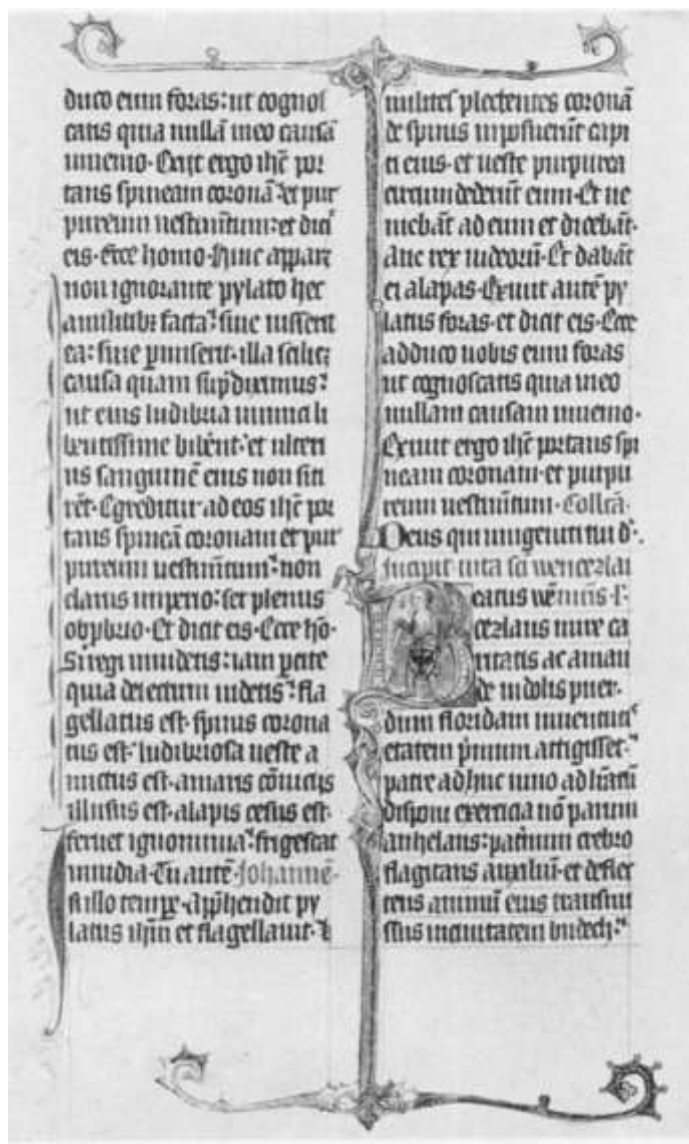 duco eum foras: ut cognos
catis quia nullā in eo causā
inuenio. Exijt ergo ihc̄ por
tans spineam coronā: et pur
pureum uestim̄tum: et dicit
eis. Ecce homo. Hinc apparet
non ignorante pylato hec
a militibꝫ facta: siue iusserit
ea: siue p̄miserit. illa scilicꝫ
causa quam sup̄ diximus:
ut eius ludibria inimici li
bentissime bibe͞nt: et ulteri
us sanguinē eius non siti
rēt. Egreditur ad eos ihc̄ por
tans spineā coronam et pur
pureum uestim̄tum: non
clarus imperio: set plenus
obp̄brio. Et dicit eis. Ecce hō.
Si regi inuidetis: iam p̄cite
quia deiectum uidetis: fla
gellatus est. spinis corona
tus est. ludibriosa ueste a
mictus est. amaris cōuicijs
illusus est. alapis cesus est.
feruet ignominia: frigescat
inuidia. Tu autē. Johannē.
In illo tempr̄e. App̄hendit py
latus ihm̄ et flagellauit. Et
milites plectentes coronā
de spinis inposuerūt capi
ti eius. et ueste purpurea
circumdederūt eum. Et ue
niebāt ad eum et dicebāt.
Aue rex iudeorū. Et dabāt
ei alapas. Exiuit autē py
latus foras. et dicit eis. Ecce
adduco uobis eum foras
ut cognoscatis quia in eo
nullam causam inuenio.
Exiuit ergo ihc̄ portans spi
neam coronam. et purpu
reum uestim̄tum. Collcā.
Deus qui unigeniti tui d̄.
Incipit uita sc̄i wenczlai
Beatus wēmrīs. l.
cezlaus mire ca
ritatis ac amau
de indolis puer.
dum floridam iuuentutis
etatem p̄mum attigisset.
patre adhuc uiuo ad hr̄atū
disponi exercicia nō parum
anhelans: pat̄num crebro
flagitans auxiliū. et deflec
tens animū eius transmi
ssus in ciuitatem budech.